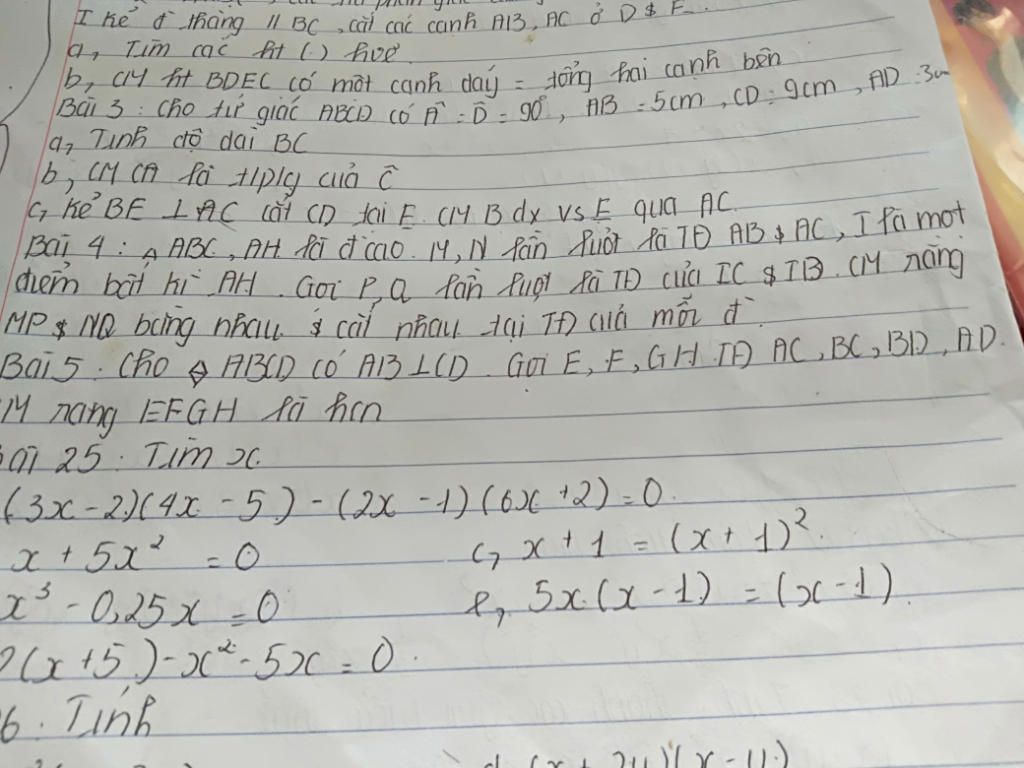 I kẻ đ thẳng // BC, cắt các cạnh AB, AC ở D & E.
a, Tìm các ht () hvẽ
b, CM ht BDEC có một cạnh đáy = tổng hai cạnh bên
Bài 3: Cho tứ giác ABCD có Â = D̂ = 90°, AB = 5cm, CD = 9cm, AD = 3cm
a, Tính độ dài BC
b, CM CA là tipig của Ĉ
c, Kẻ BE ⊥ AC cắt CD tại E. CM B đx vs E qua AC
Bài 4: △ ABC, AH là đ cao. M, N lần lượt là TĐ AB & AC, I là một
điểm bất kì AH. Gọi P, Q lần lượt là TĐ của IC & IB. CM rằng
MP & NQ bằng nhau & cắt nhau tại TĐ của mỗi đ.
Bài 5. Cho ABCD có AB ⊥ CD. Gọi E, F, G H TĐ AC, BC, BD, AD.
CM rằng EFGH là hcn
Bài 25: Tìm x.
(3x - 2)(4x - 5) - (2x - 1)(6x + 2) = 0.
x + 5x² = 0 c, x + 1 = (x + 1)².
x³ - 0,25x = 0 e, 5x.(x - 1) = (x - 1).
2(x + 5) - x² - 5x = 0.
6. Tính
(x + 2y)(x - y)